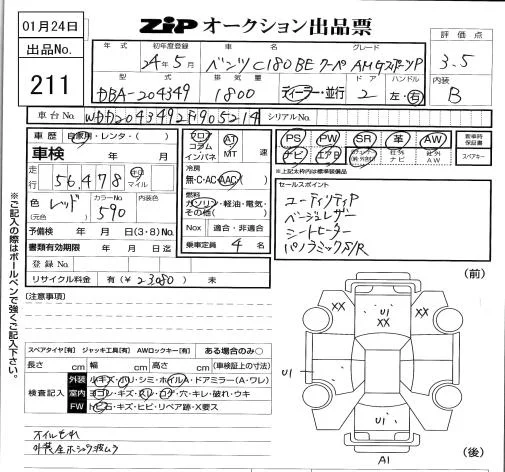 01月24日
出品No.
211
ZIP オークション出品票
年 式 初年度登録 車 名 グレード
24年5月 ベンツC180 BE クーペ AMGスポーツP
評価点
3.5
型 式 排気量 ドア ハンドル
DBA-204349 1800 ディーラー・並行 2 左・右
内装
B
車台No. WDD2043492F905214 シリアルNo.
車歴 自家用・レンタ・( )
車検 年 月
フロア コラム インパネ
AT MT 速
PS PW SR 革 AW
ナビ エアB
新車時保証書
スペアキー
社外ナビ 社外AW
※上記太枠内は標準装備品
走行 56,478 km マイル
冷房
無・C・AC・AAC
色 レッド (元色)
カラーNo. 590
内装色
燃料
ガソリン・軽油・電気・その他( )
予備検 年 月 日(3・8)No.
Nox 適合・非適合
書類有効期限 年 月 日迄
乗車定員 4 名
登録No
リサイクル料金 有(¥ 23,080) 無
セールスポイント
ユーティリティP
ベージュレザー
シートヒーター
パノラミックS/R
※ご記入の際はボールペンで強くご記入下さい。
(注意事項)
スペアタイヤ[有] ジャッキ工具[有] AWロックキー[有] ある場合のみ○
長さ cm 幅 cm 高さ cm (車検証上の寸法)
検査記入
外装 小キズ・小凹・シミ・ホイルA・ドアミラー(A・ワレ)
室内 ヨゴレ・キズ・スレ・コゲ・穴・キレ・破れ・ウキ
FW トビ石・キズ・ヒビ・リペア跡・X要ス
オイルモレ
(前)
XX U1 XX XX
U1 U1
A1
(後)